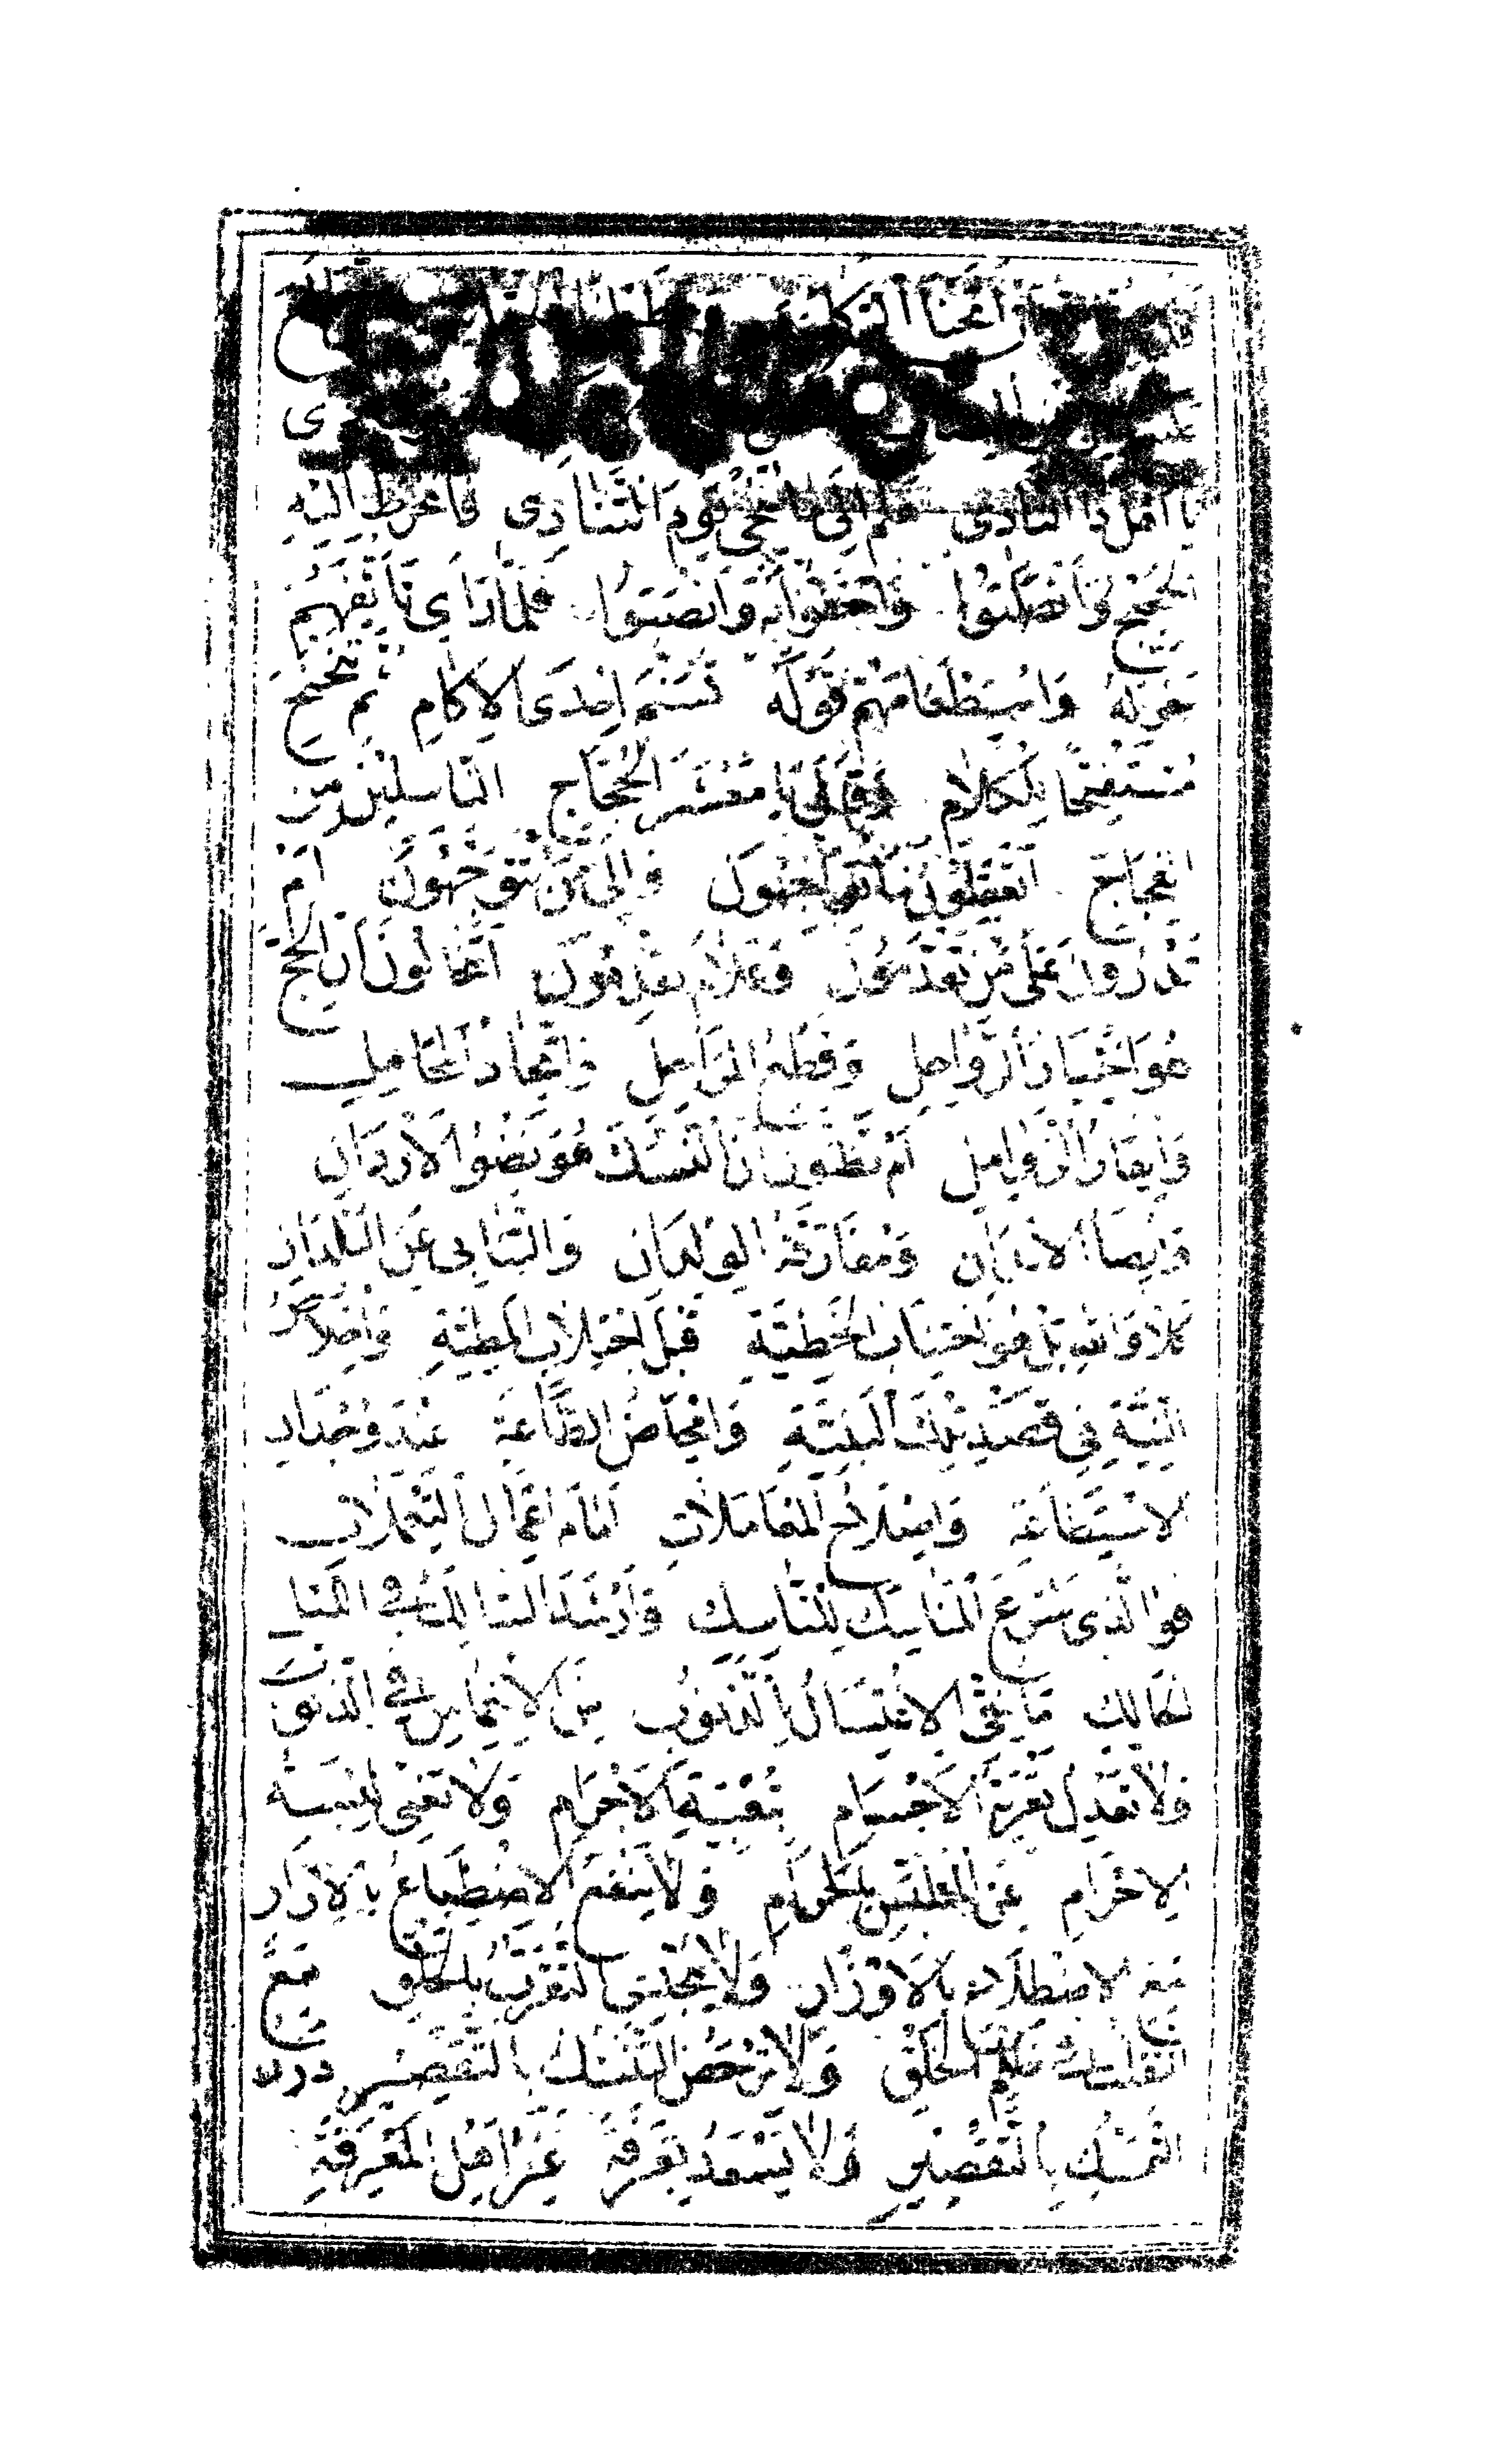 أنخنا الركائب
يا أهل ذا النادي هلم إلى ما ينجي يوم التنادي فانخرط إليه
الحجيج وانصلتوا واحتفوا به وأنصتوا فلما رأى تأثفهم
حوله واستطعامهم قوله تسنم إحدى الآكام ثم تنحنح
مستفتحا للكلام وقال يا معشر الحجاج الناسلين من
الفجاج أتعقلون ما تواجهون وإلى من تتوجهون أم
تدرون على من تقدمون وعلام تقدمون أتخالون أن الحج
هو اختيار الرواحل وقطع المراحل واتخاذ المحامل
وإيقار الزوامل أم تظنون أن النسك هو نضو الأردان
وإنضاء الأبدان ومفارقة الولدان والتنائي عن البلدان
كلا والله بل هو اجتناب الخطية قبل اجتلاب المطية وإخلاص
النية في قصد تلك البنية وإمحاض الطاعة عند وجدان
الاستطاعة وإصلاح المعاملات أمام إعمال اليعملات
فوالذي شرع المناسك للناسك وأرشد السالك في الليل
الحالك ما ينقي الاغتسال بالذنوب من الانغماس في الذنوب
ولا تعدل تعرية الأجسام بتعبية الأجرام ولا تغني لبسة
الإحرام عن المتلبس بالحرام ولا ينفع الاضطباع بالإزار
مع الاضطلاع بالأوزار ولا يجدي التقرب بالحلق مع
التقلب في ظلم الخلق ولا يرحض التنسك بالتقصير درن
التمسك بالتقصير ولا يسعد بعرفة غير أهل المعرفة